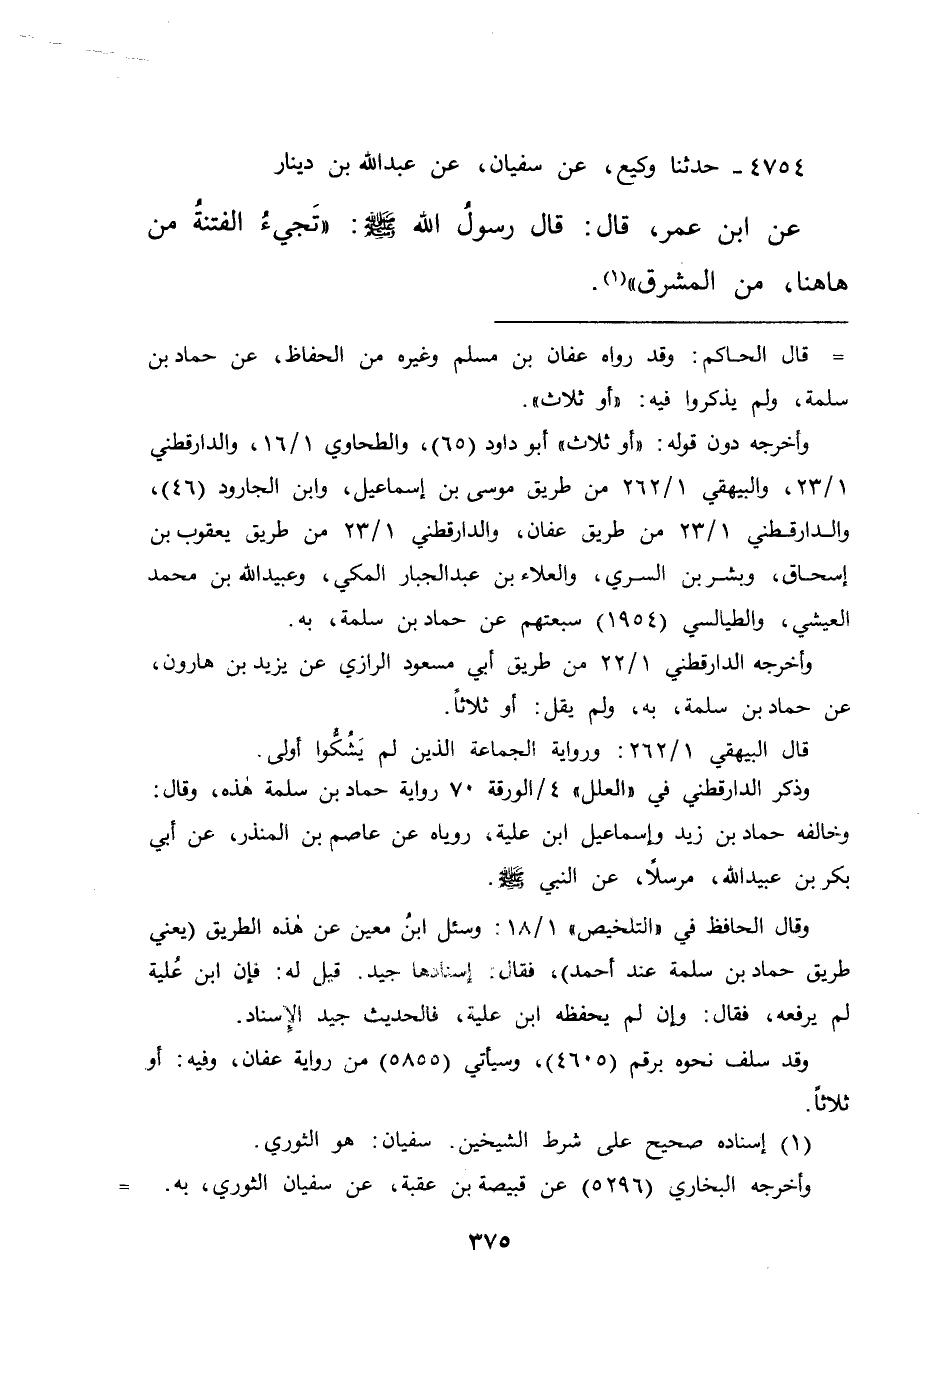 ٤٧٥٤ - حدثنا وكيع، عن سفيان، عن عبدالله بن دينار
عن ابن عمر، قال: قال رسولُ الله ﷺ: «تَجيءُ الفتنةُ من
هاهنا، من المشرق»(١).
= قال الحاكم: وقد رواه عفان بن مسلم وغيره من الحفاظ، عن حماد بن
سلمة، ولم يذكروا فيه: «أو ثلاث».
وأخرجه دون قوله: «أو ثلاث» أبو داود (٦٥)، والطحاوي ١٦/١، والدارقطني
٢٣/١، والبيهقي ٢٦٢/١ من طريق موسى بن إسماعيل، وابن الجارود (٤٦)،
والدارقطني ٢٣/١ من طريق عفان، والدارقطني ٢٣/١ من طريق يعقوب بن
إسحاق، وبشر بن السري، والعلاء بن عبدالجبار المكي، وعبيدالله بن محمد
العيشي، والطيالسي (١٩٥٤) سبعتهم عن حماد بن سلمة، به.
وأخرجه الدارقطني ٢٢/١ من طريق أبي مسعود الرازي عن يزيد بن هارون،
عن حماد بن سلمة، به، ولم يقل: أو ثلاثاً.
قال البيهقي ٢٦٢/١: ورواية الجماعة الذين لم يَشُكُّوا أولى.
وذكر الدارقطني في «العلل» ٤/الورقة ٧٠ رواية حماد بن سلمة هٰذه، وقال:
وخالفه حماد بن زيد وإسماعيل ابن علية، روياه عن عاصم بن المنذر، عن أبي
بكر بن عبيدالله، مرسلاً، عن النبي ﷺ.
وقال الحافظ في «التلخيص» ١٨/١: وسئل ابنُ معين عن هٰذه الطريق (يعني
طريق حماد بن سلمة عند أحمد)، فقال: إسنادها جيد. قيل له: فإن ابن عُلية
لم يرفعه، فقال: وإن لم يحفظه ابن علية، فالحديث جيد الإِسناد.
وقد سلف نحوه برقم (٤٦٠٥)، وسيأتي (٥٨٥٥) من رواية عفان، وفيه: أو
ثلاثاً.
(١) إسناده صحيح على شرط الشيخين. سفيان: هو الثوري.
وأخرجه البخاري (٥٢٩٦) عن قبيصة بن عقبة، عن سفيان الثوري، به. =
٣٧٥